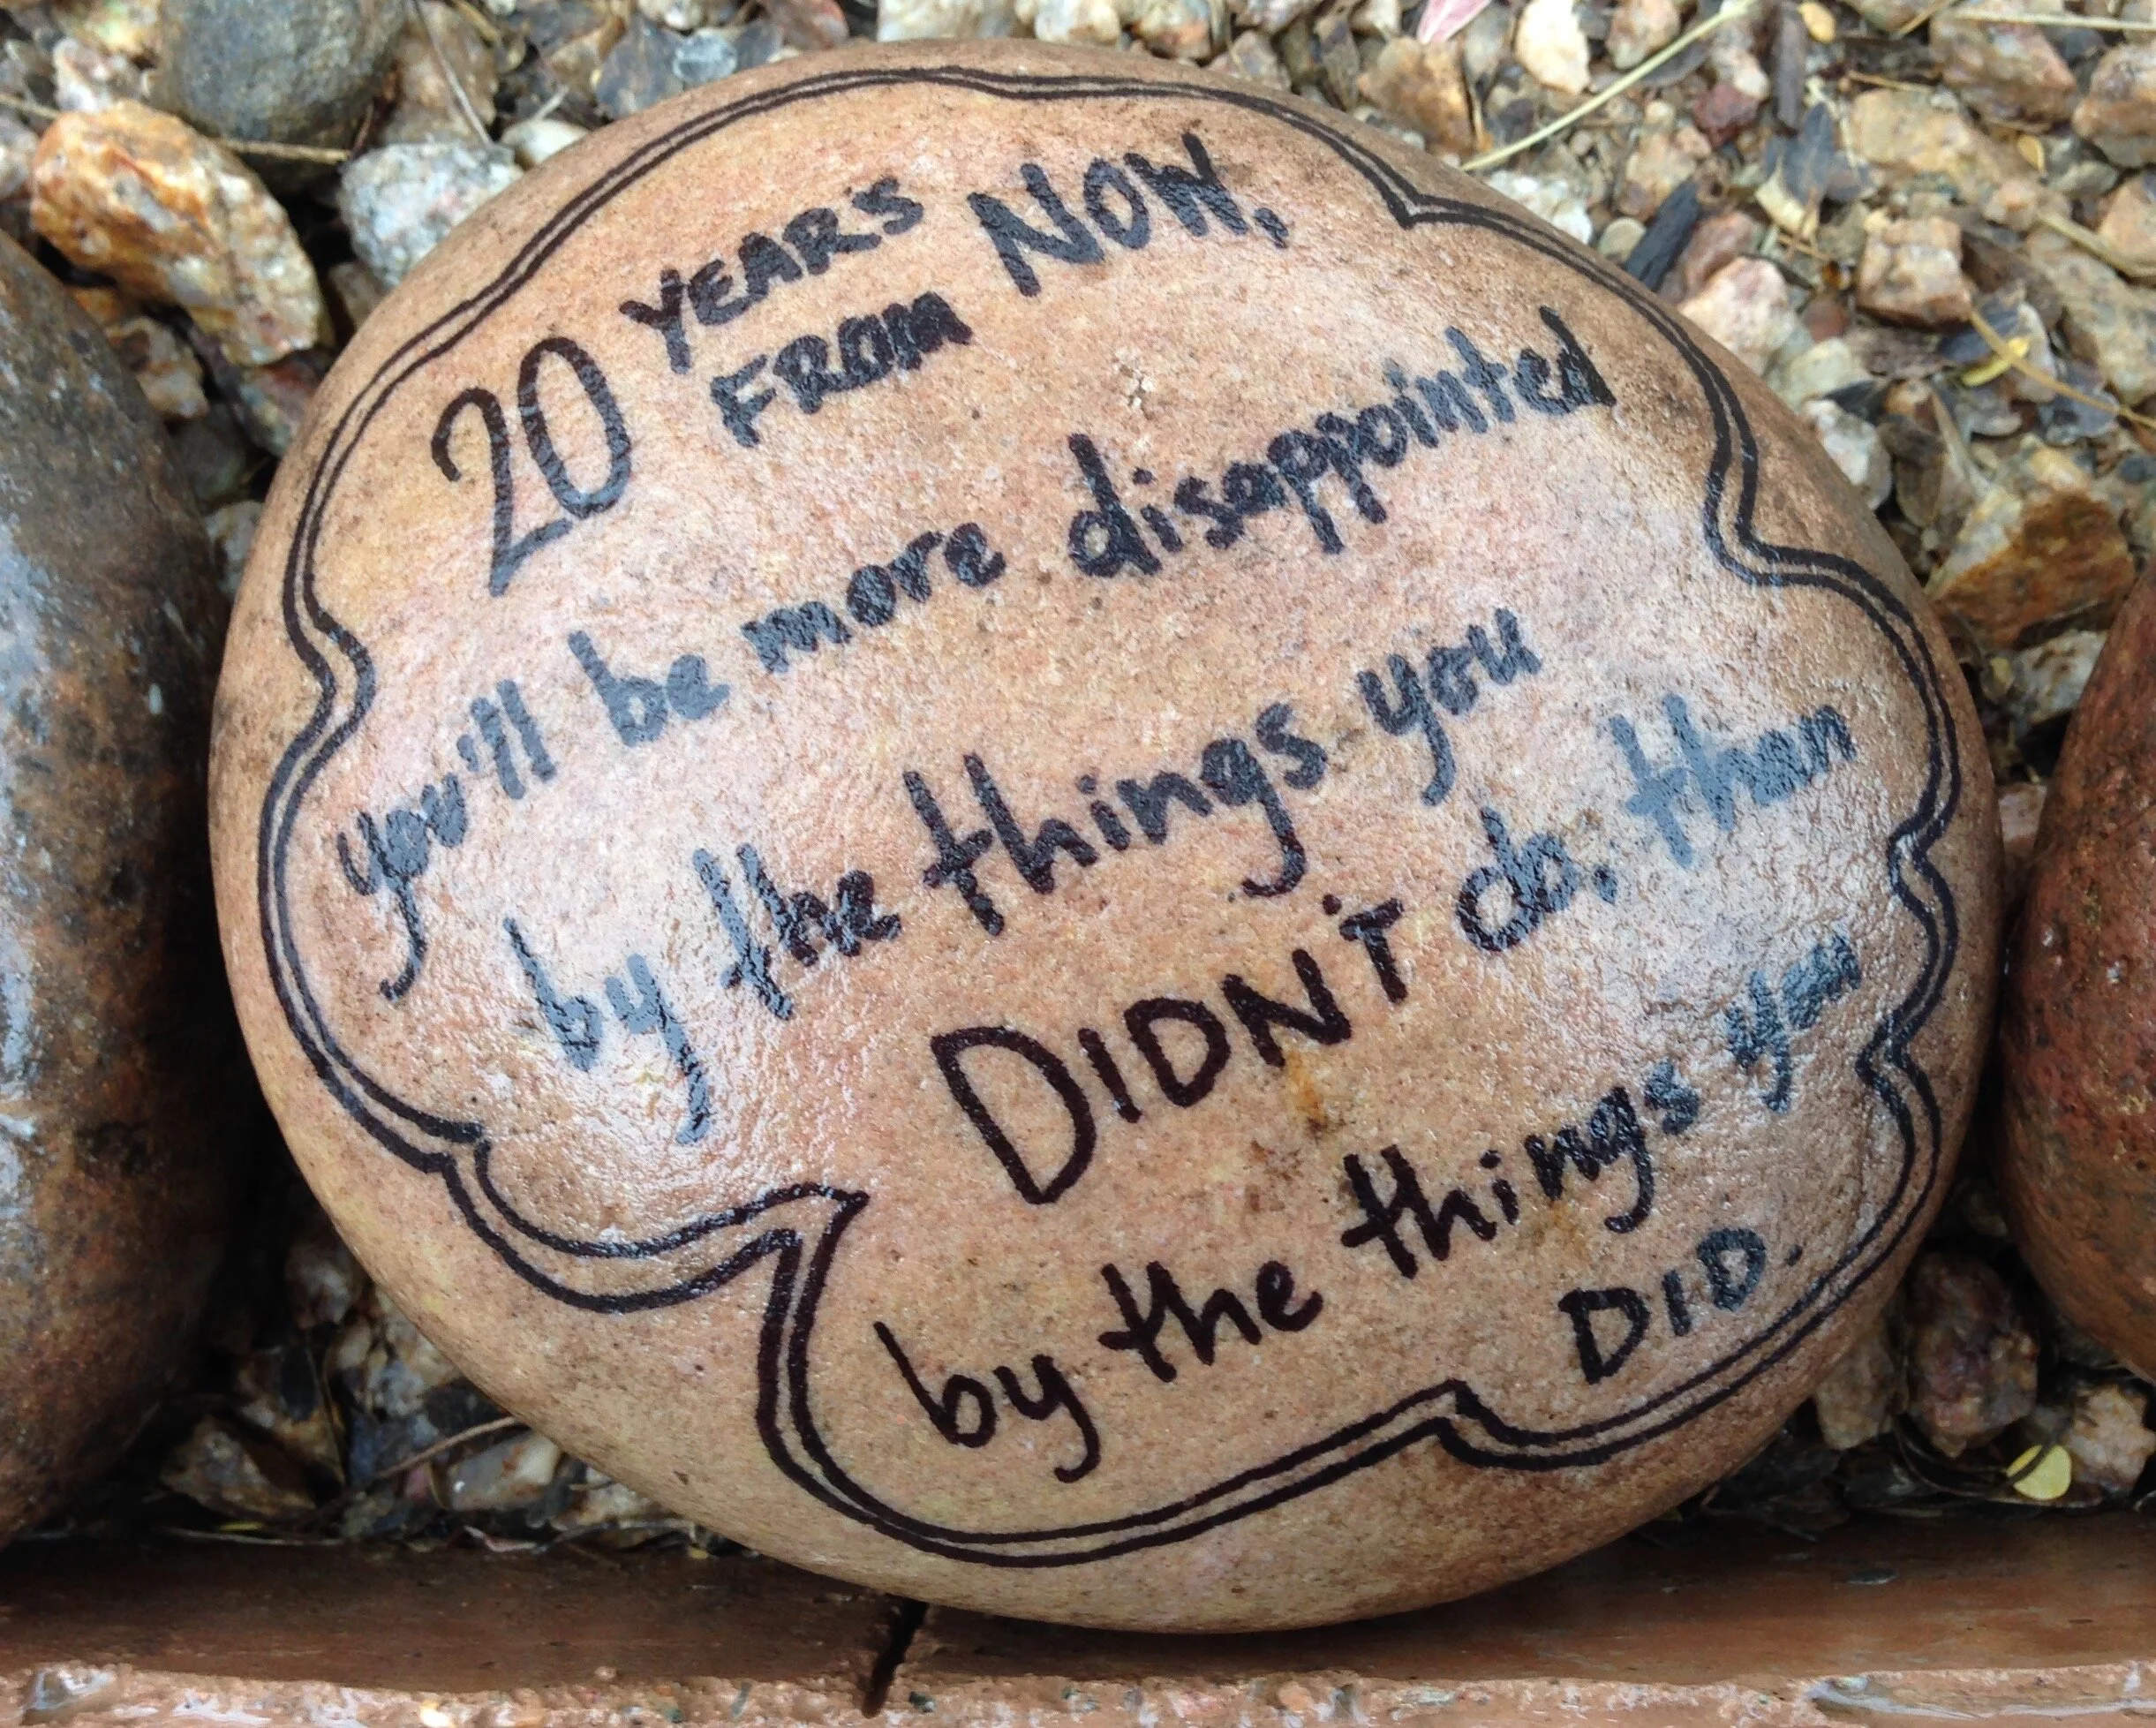 20 YEARS FROM NOW,
you'll be more disappointed
by the things you
DIDN'T do, than
by the things you
DID.